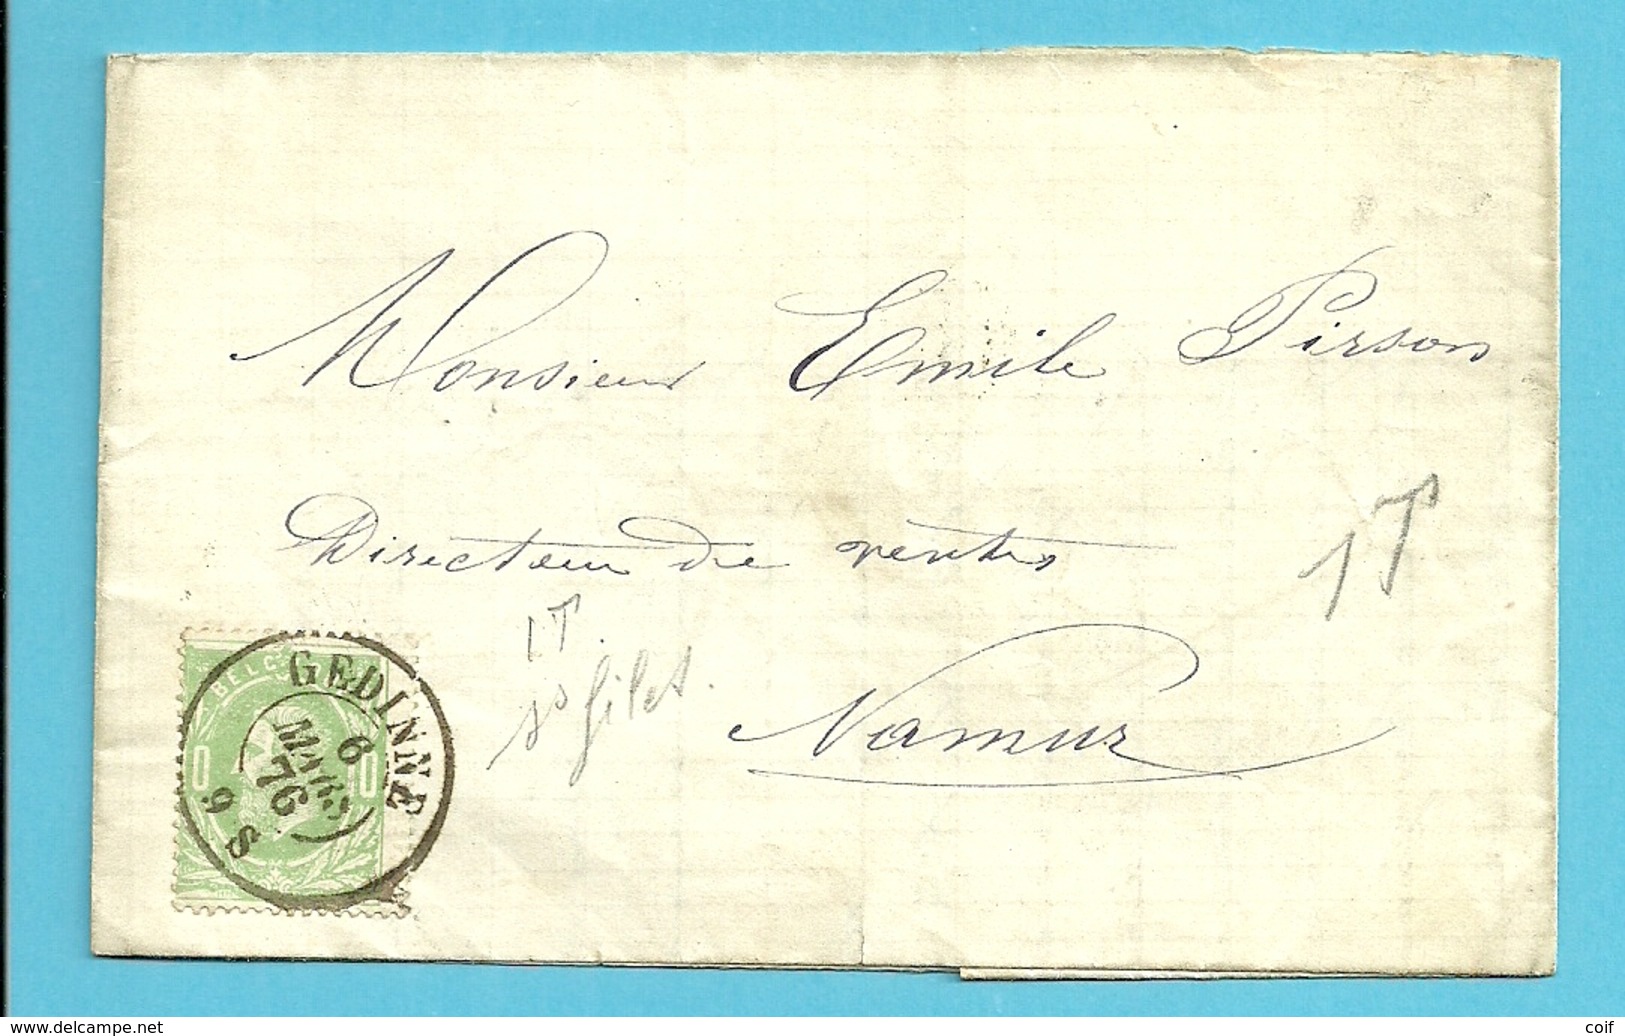 Monsieur Emile Pirson
Directeur de ventes
1T
1T
ss filet.
Namur
BELG
10
GEDINNE
6
MARS
76
9 S
www.delcampe.net
coif